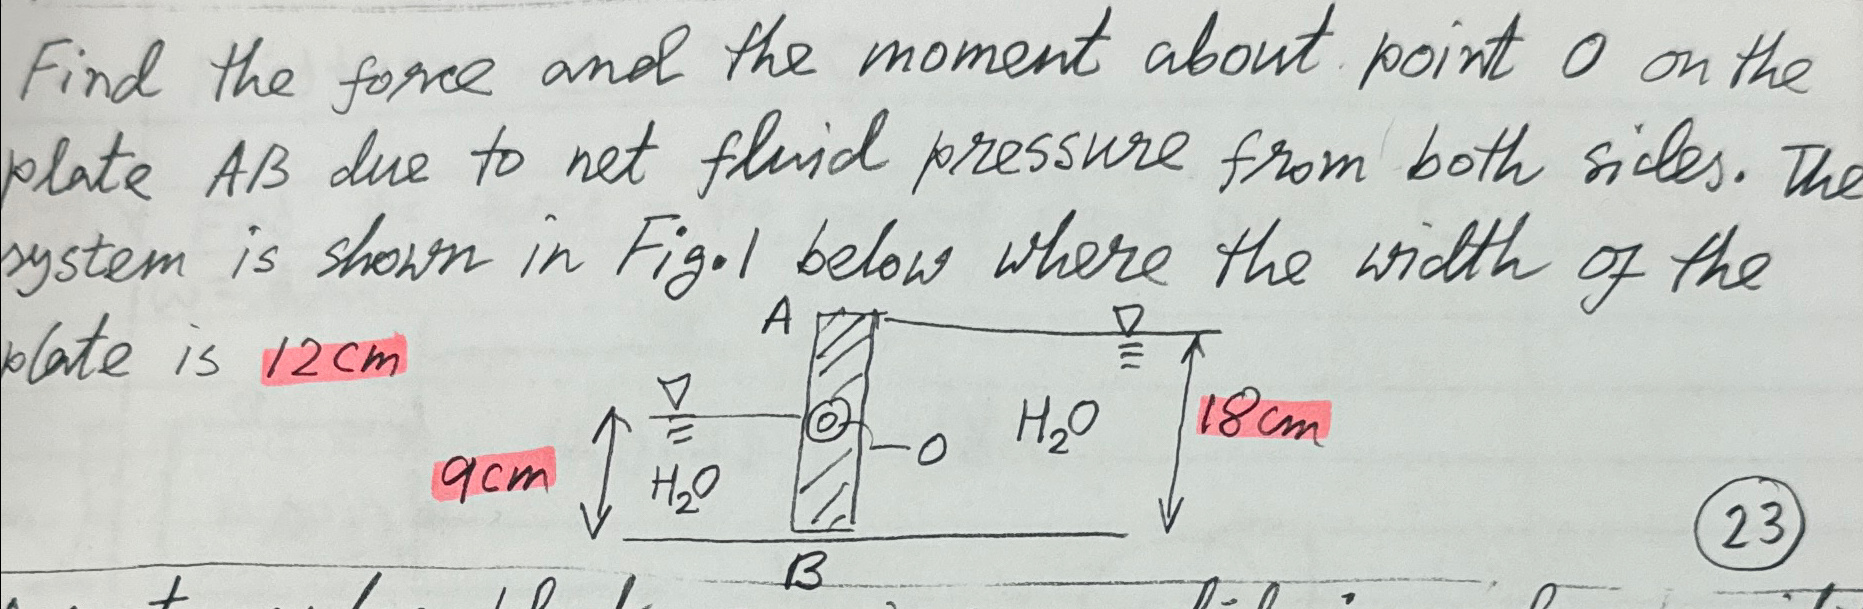 Find the force and the moment about point O on the
plate AB due to net fluid pressure from both sides. The
system is shown in Fig.1 below where the width of the
plate is 12cm
A
H₂O
18cm
O
9cm
H₂O
23
B